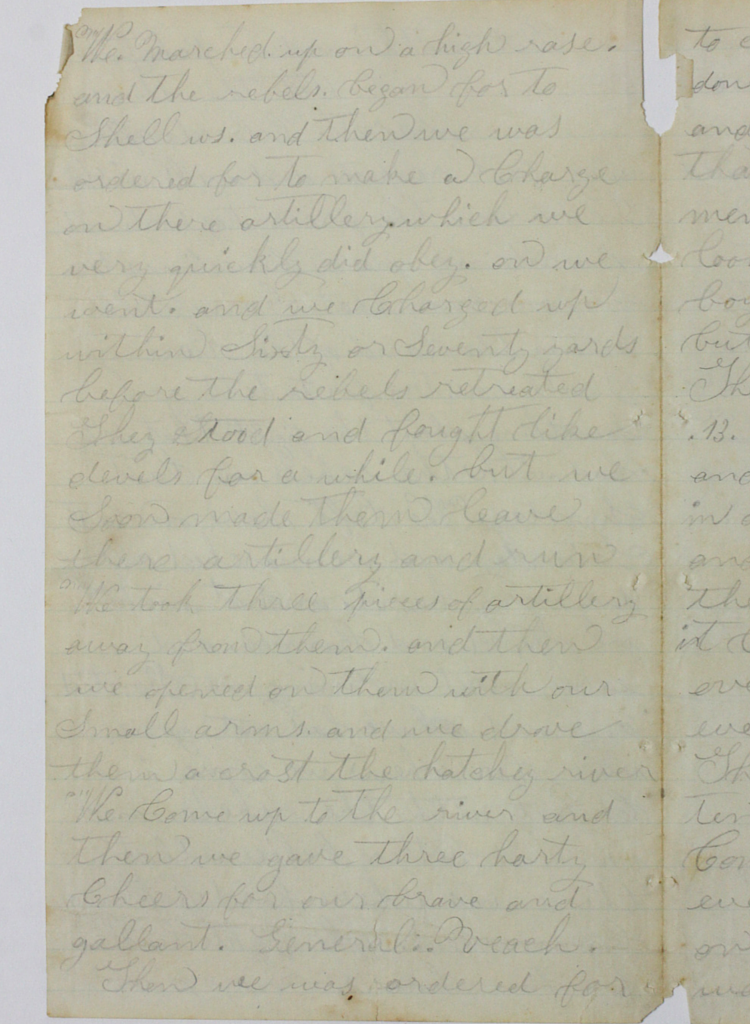 We. Marched. up on a high rase.
and the rebels. began for to
Shell us. and then we was
ordered for to make a Charge
on there artillery. which we
very quickly did obey. on we
went. and we Charged up
within Sixty or Seventy yards
before the rebels retreated
They Stood and fought like
devels for a while. but we
Soon made them leave
there artillery and run
We took three pieces of artillery
away from them. and then
we opened on them with our
Small arms. and we drove
them a crost the hatchey river
We. Come up to the river and
then we gave three harty
Cheers for our brave and
gallant. General. Veach.
Then we was ordered for
to
don
and
tha
men
loo
boy
but
Th
.13.
and
in
and
the
it
eve
eve
Th
ten
Com
eve
on
we